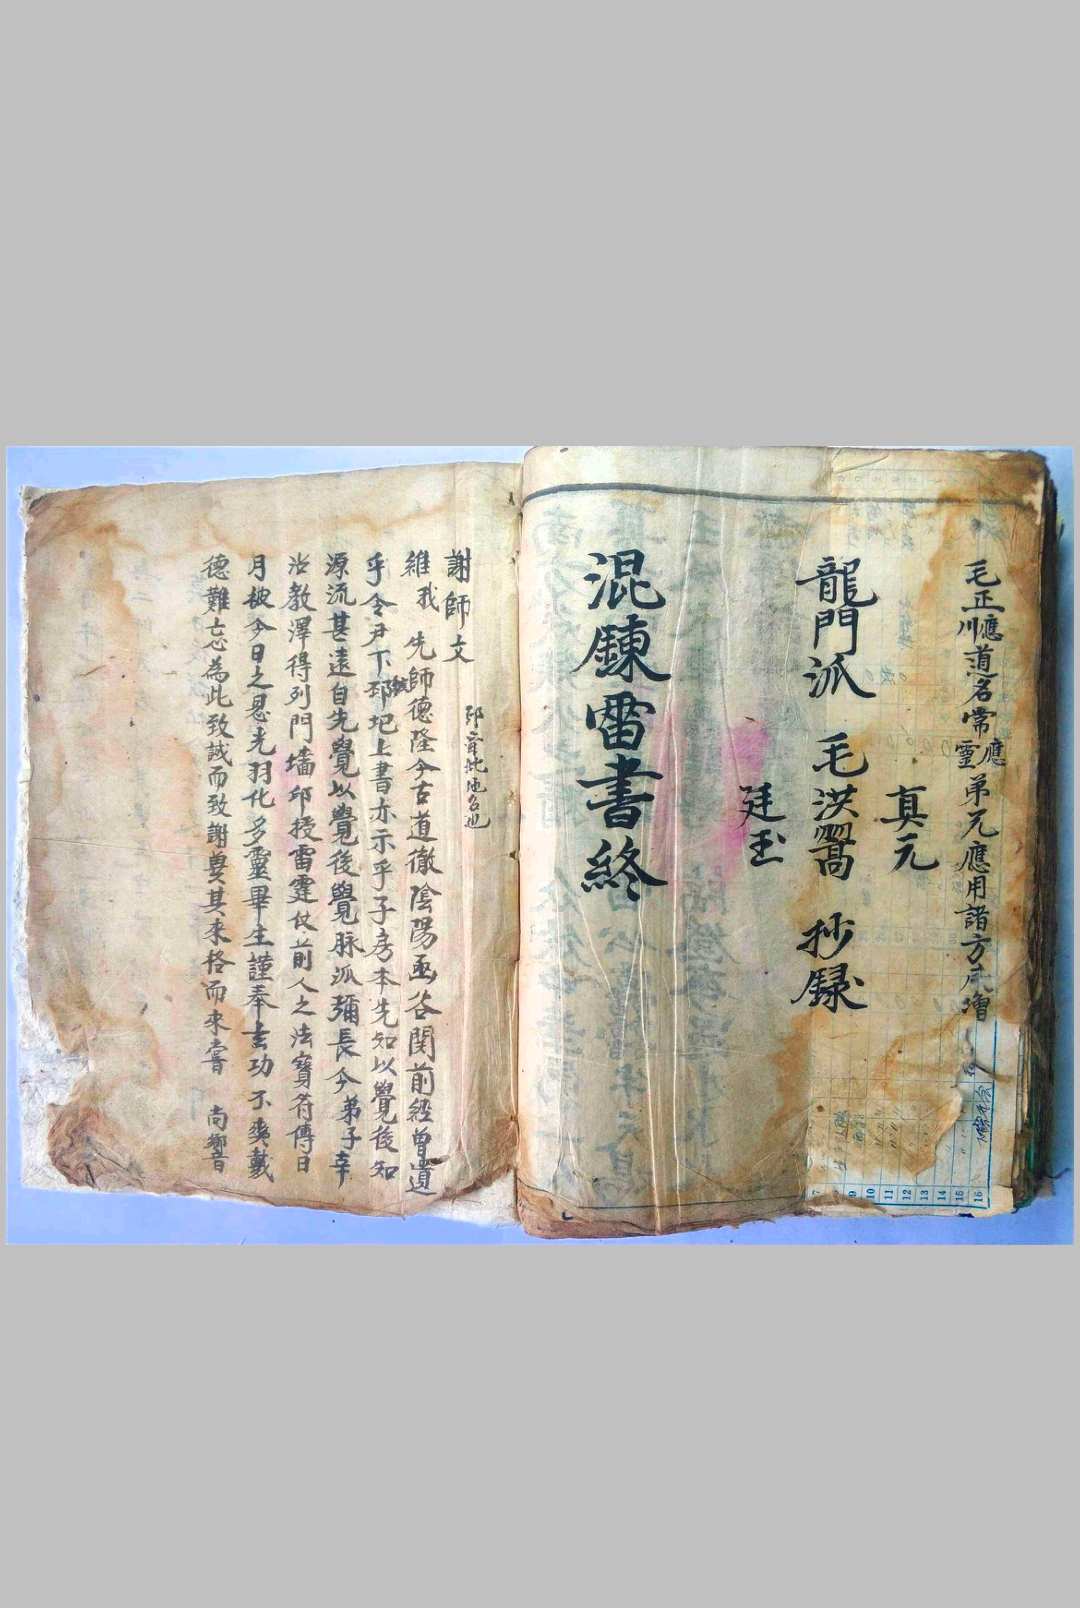 毛正川應道名常靈應弟兄應用諸方
真元
龍門派 毛洪翯 抄録
廷玉
混錬雷書終
謝師文
邳音批地名也
維我 先師德隆今古道徹陰陽函谷関前經曽遺
乎令尹下邳圯上書亦示乎子房本先知以覺後知
源流甚遠自先覺以覺後覺脉派彌長今弟子幸
沾教澤得列門墻印授雷霆仗前人之法寳符傳日
月被今日之恩光羽化多靈畢生謹奉玄功不爽戴
德難忘為此致誠而致謝奠其來格而來嘗 尚響
7
9
10
11
12
13
14
15
16